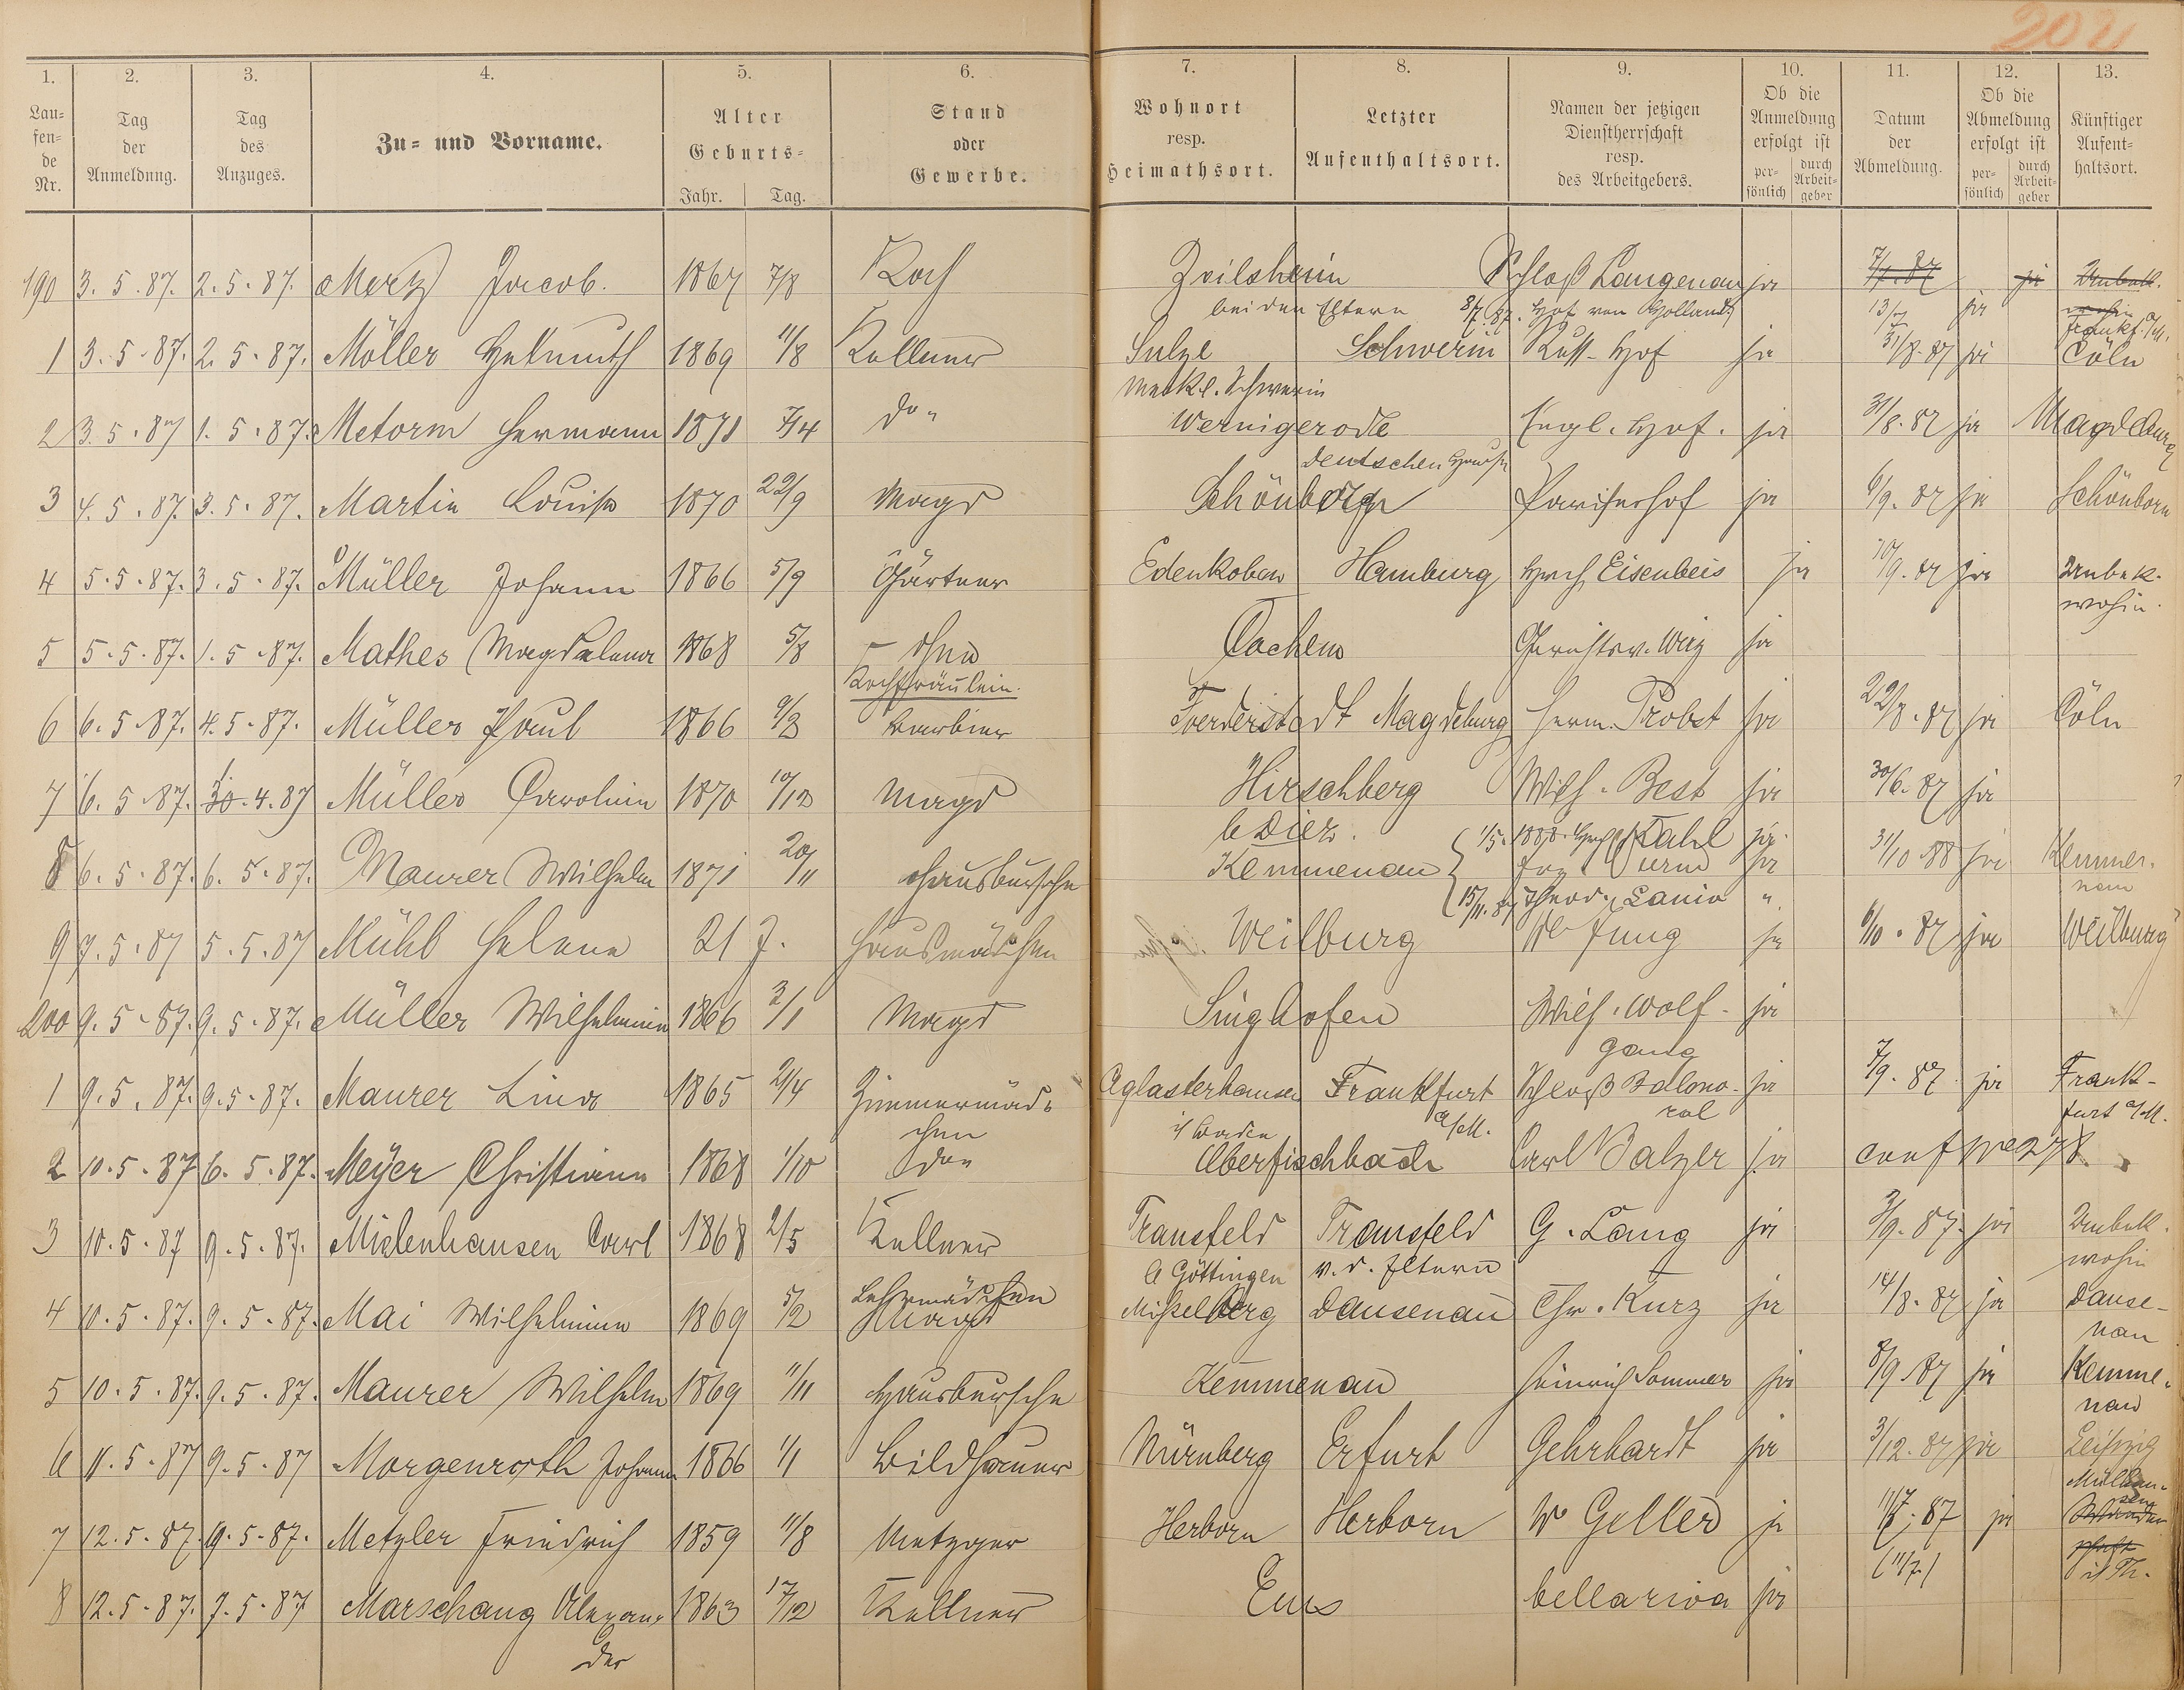 202
1. 2. 3. 4. 5. 6. 7. 8. 9. 10. 11. 12. 13.
Lau=fen=de Nr.
Tag der Anmeldung.
Tag des Anzuges.
Zu= und Vorname.
Alter Geburts= Jahr. Tag.
Stand oder Gewerbe.
Wohnort resp. Heimathsort.
Letzter Aufenthaltsort.
Namen der jetzigen Dienstherrschaft resp. des Arbeitgebers.
Ob die Anmeldung erfolgt ist per=sönlich durch Arbeit=geber
Datum der Abmeldung.
Ob die Abmeldung erfolgt ist per=sönlich durch Arbeit=geber
Künftiger Aufent=haltsort.
190 3. 5. 87. 2. 5. 87. Mertz Jacob. 1867 7/8 Koch Zeilsheim Schloß Langenau ja 7/7. 87 ja Unbek. wohin
bei den Eltern 8/7. 87. Hof von Holland 13/7 ja Frankf. a/M.
1 3. 5. 87. 2. 5. 87. Möller Helmuth 1869 11/8 Kellner Sulze Schwerin Russ. Hof ja 31/8. 87 ja Cöln
Meckl. Schwerin
2 3. 5. 87 1. 5. 87. Metorm Hermann 1871 7/4 do " Wernigerode Engl. Hof. ja 31/8. 87 ja Magdeburg
Deutschen Hause
3 4. 5. 87. 3. 5. 87. Martin Louise 1870 29/9 Magd Schönborn Pariserhof ja 6/9. 87 ja Schönborn
4 5. 5. 87. 3. 5. 87. Müller Johann 1866 5/9 Gärtner Edenkoben Hamburg Hrch Eisenbeis ja 10/9. 87 ja Unbek. wohin.
5 5. 5. 87. 1. 5. 87. Mathes Magdalena 1868 5/8 – ohne Cochem Gerichtsv. Weig ja
Kochfräulein.
6 6. 5. 87. 4. 5. 87. Müller Paul 1866 9/3 Barbier Foerderstedt Magdeburg Herm. Probst ja 22/8. 87 ja Cöln
7 6. 5. 87. 30. 4. 87 Müller Carolina 1870 10/12 Magd Hirschberg Wilh. Best ja 30/6. 87 ja
b Diez. 1/5. 1888. Hrch Stahl ja
8 6. 5. 87. 6. 5. 87. Maurer Wilhelm 1871 20/11 Hausbursche Kemmenau ja 31/10 88 ja Kemmenau
15/11. 87 Theod. Lanio "
9 7. 5. 87 5. 5. 87 Mühl Helene 21 J. Hausmädchen Weilburg We Jung ja 6/10. 87 ja Weilburg
200 9. 5. 87. 9. 5. 87. Müller Wilhelmine 1866 3/1 Magd Singhofen Wilh. Wolfgang ja
1 9. 5. 87. 9. 5. 87. Maurer Lina 1865 2/4 Zimmermädchen Aglasterhausen Frankfurt a/M. Schloß Balmoral ja 7/9. 87 ja Frankfurt a/M.
i/ Baden
2 10. 5. 87 6. 5. 87. Meyer Christiane 1868 1/10 do " Oberfischbach Carl Balzer ja conf No 278.
3 10. 5. 87 9. 5. 87. Mielenhausen Carl 1868 2/5 Kellner Transfeld Transfeld G. Lang ja 3/9. 87. ja Unbek. wohin
b Göttingen v. d. Eltern
4 10. 5. 87. 9. 5. 87. Mai Wilhelmine 1869 5/2 Lehrmädchen Magd Misselberg Dausenau Chr. Kurz ja 14/8. 87 ja Dausenau
5 10. 5. 87. 9. 5. 87. Maurer Wilhelm 1869 11/11 Hausbursche Kemmenau Heinrich Sommer ja 8/9. 87 ja Kemmenau
6 11. 5. 87 9. 5. 87 Morgenroth Johann 1866 1/1 Bildhauer Nürnberg Erfurt Gehrhardt ja 3/12. 87 ja Leipzig
7 12. 5. 87. 9. 5. 87. Metzler Friedrich 1859 11/8 Metzger Herborn Herborn W. Geller ja 11/7. 87 ja Mülhausen i/Th.
(11/7.)
8 12. 5. 87. 7. 5. 87 Marschang Alexander 1863 17/12 Kellner Ems bellariva ja